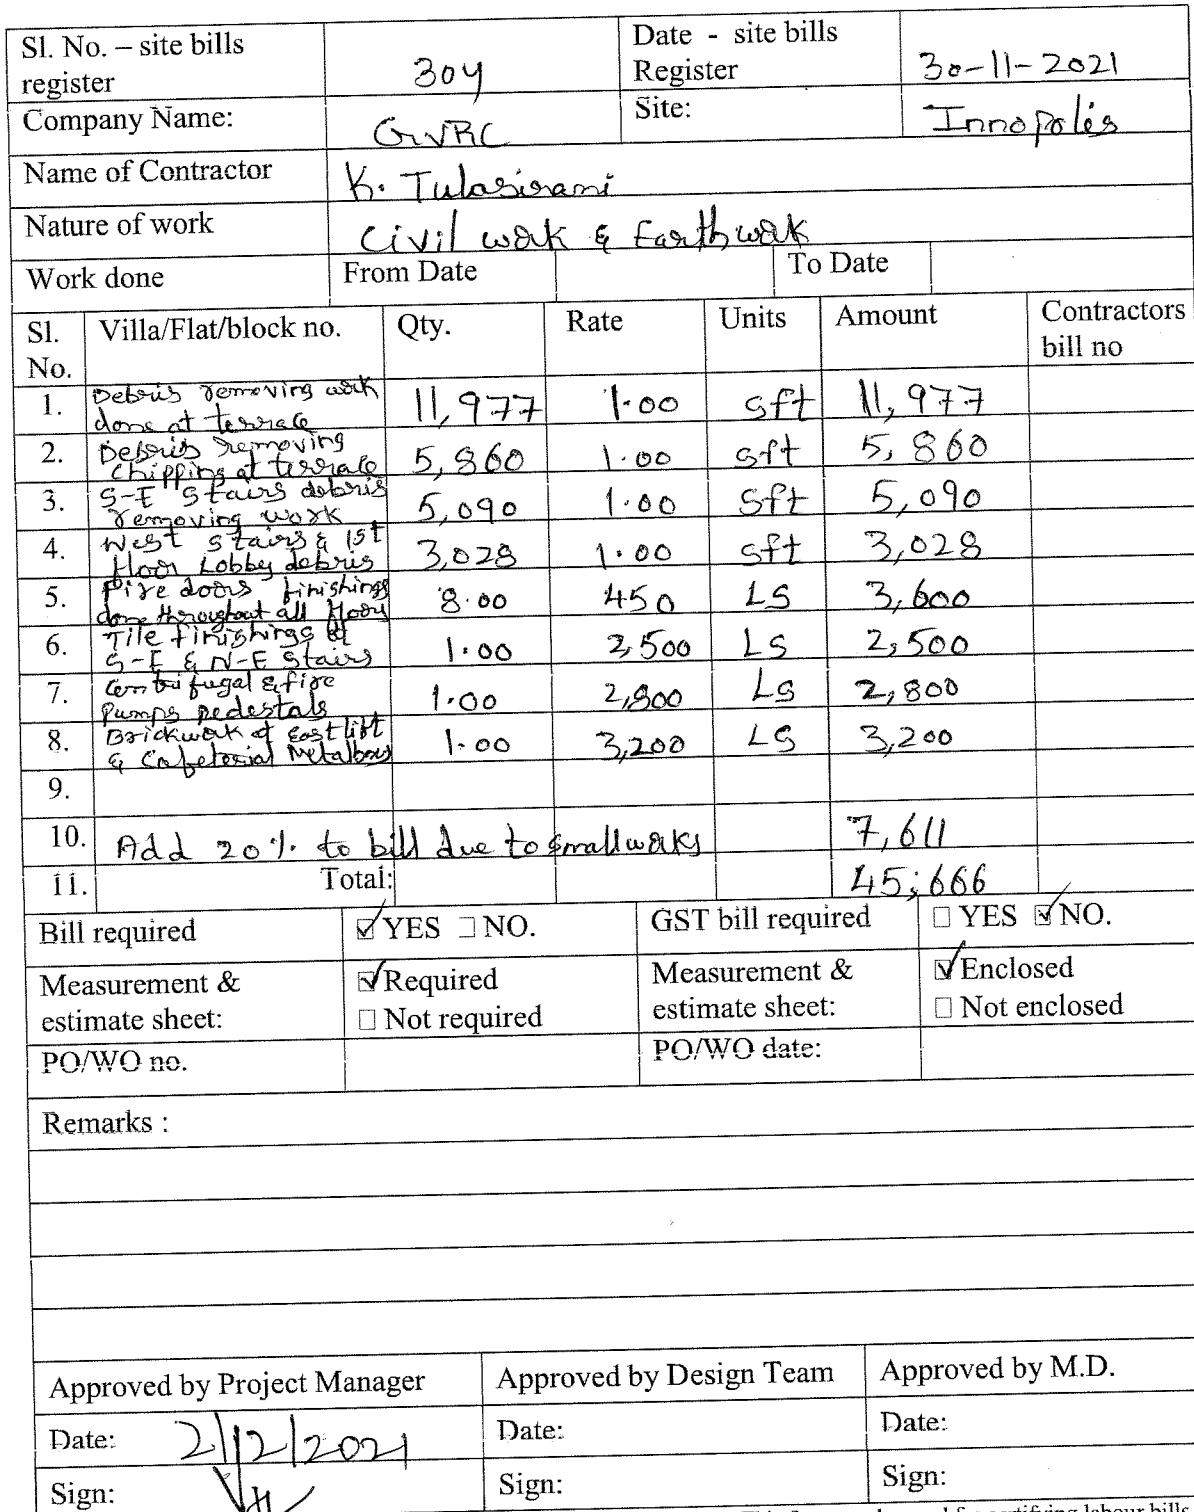 Sl. No. – site bills register 304 Date - site bills Register 30-11-2021
Company Name: GVRC Site: Innopolis
Name of Contractor K. Tulasirani
Nature of work Civil work & Earthwork
Work done From Date To Date
Sl. No. Villa/Flat/block no. Qty. Rate Units Amount Contractors bill no
1. Debris removing work done at terrace 11,977 1.00 sft 11,977
2. Debris removing chipping at terrace 5,860 1.00 sft 5,860
3. S-E stairs debris removing work 5,090 1.00 sft 5,090
4. West stairs & 1st floor Lobby debris 3,028 1.00 sft 3,028
5. Fire doors finishings done throughout all floors 8.00 450 LS 3,600
6. Tile finishings at S-E & N-E stairs 1.00 2,500 LS 2,500
7. Centrifugal & fire Pumps pedestals 1.00 2,800 LS 2,800
8. Brickwork at East lift & Cafeterial 1.00 3,200 LS 3,200
9.
10. Add 20% to bill due to small works 7,611
11. Total: 45,666
Bill required ☑ YES □ NO. GST bill required □ YES ☑ NO.
Measurement & estimate sheet: ☑ Required □ Not required Measurement & estimate sheet: ☑ Enclosed □ Not enclosed
PO/WO no. PO/WO date:
Remarks :
Approved by Project Manager Approved by Design Team Approved by M.D.
Date: 2/12/2021 Date: Date:
Sign: Sign: Sign: